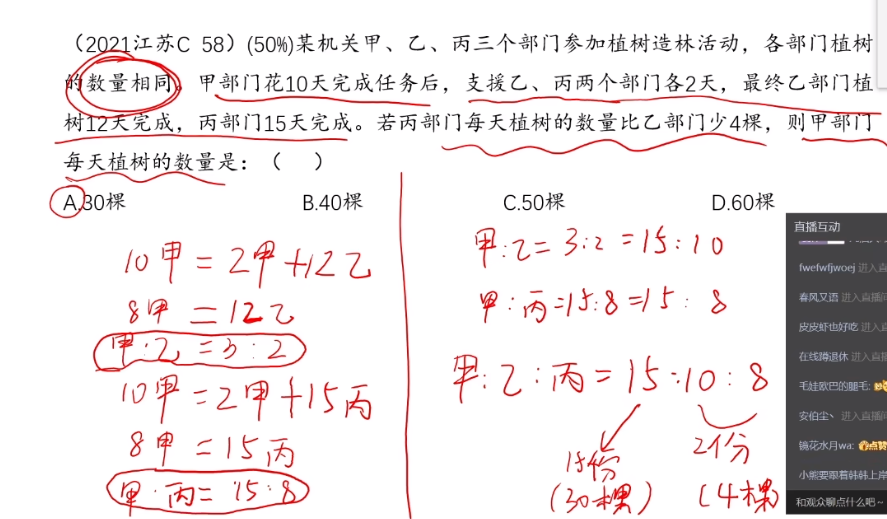 （2021江苏C 58）(50%)某机关甲、乙、丙三个部门参加植树造林活动，各部门植树
的数量相同。甲部门花10天完成任务后，支援乙、丙两个部门各2天，最终乙部门植
树12天完成，丙部门15天完成。若丙部门每天植树的数量比乙部门少4棵，则甲部门
每天植树的数量是：（ ）
A.30棵 B.40棵 C.50棵 D.60棵
10甲=2甲+12乙
8甲=12乙
甲:乙=3:2
10甲=2甲+15丙
8甲=15丙
甲:丙=15:8
甲:乙=3:2=15:10
甲:丙=15:8=15:8
甲:乙:丙=15:10:8
15份
(30棵)
2份
(4棵)
直播互动
fwefwfjwoej 进入直
春风又语 进入直播间
皮皮虾也好吃 进入直
在线蹲退休 进入直播
毛娃欧巴的腿毛:
安伯尘丶 进入直播间
镜花水月wa: 点赞
小熊要跟着韩韩上岸
和观众聊点什么吧~